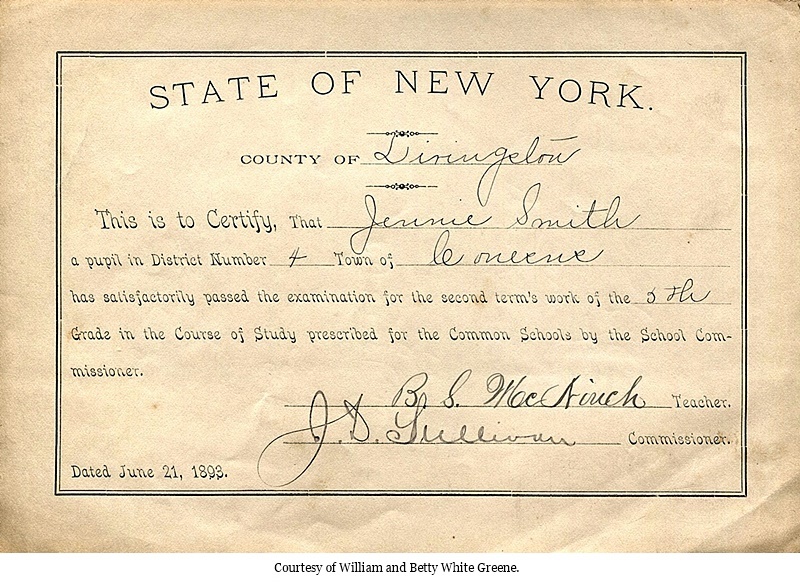 STATE OF NEW YORK.
COUNTY OF Livingston
This is to Certify, That Jennie Smith
a pupil in District Number 4 Town of Conesus
has satisfactorily passed the examination for the second term's work of the 5th
Grade in the Course of Study prescribed for the Common Schools by the School Com-
missioner.
B. S. McNinch Teacher.
J. D. Sullivan Commissioner.
Dated June 21, 1893.
Courtesy of William and Betty White Greene.